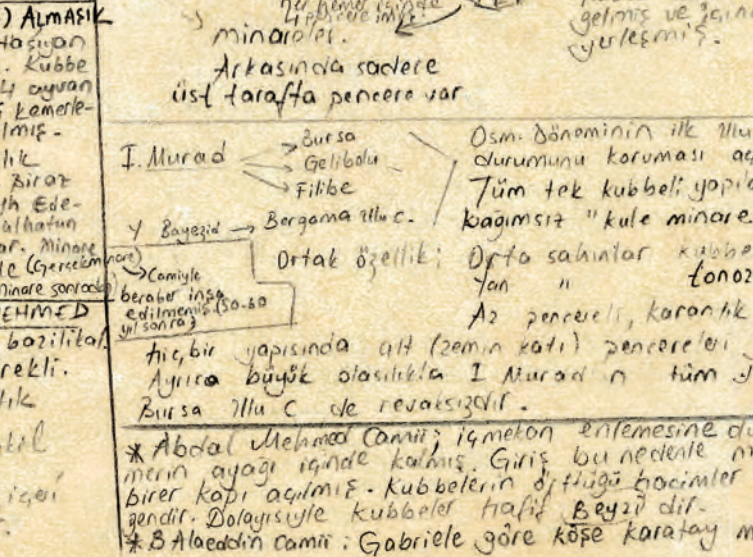 ) ALMAŞIK
Taşıyan
. Kubbe
4 ayvan
kemerle-
lmiş.
lık
Biraz
yh Ede-
alhatun
ar. Minare
(Gerçek minare)
minare sonradan)
EHMED
bazilikal
rekli.
tık
kil
içeri
içinde
4 pencere imiş.
minareler.
Arkasında sadece
üst tarafta pencere var
gelmiş ve için
yerleşmiş.
I. Murad → Bursa
→ Gelibolu
→ Filibe
Y Bayezid → Bergama Ulu C.
Osm. Döneminin ilk Ulu
durumunu koruması aç
Tüm tek kubbeli yapıla
bağımsız "kule minare
Ortak özellik: Orta sahınlar kubbe
Yan " tonoz
Az pencereli, karanlık
→ Camiyle
beraber inşa
edilmemiş. (50-60
yıl sonra)
hiç bir yapısında alt (zemin katı) pencereleri
Ayrıca büyük olasılıkla I Murad n tüm
Bursa Ulu C de revaksızdır.
* Abdal Mehmed Camii; iç mekan enlemesine
merin ayağı içinde kalmış. Giriş bu nedenle
birer kapı açılmış. Kubbelerin örttüğü hacimler
gendir. Dolayısıyle kubbeler hafif Beyzi dir.
* B Alaeddin Camii: Gabriele göre köşe karatay m